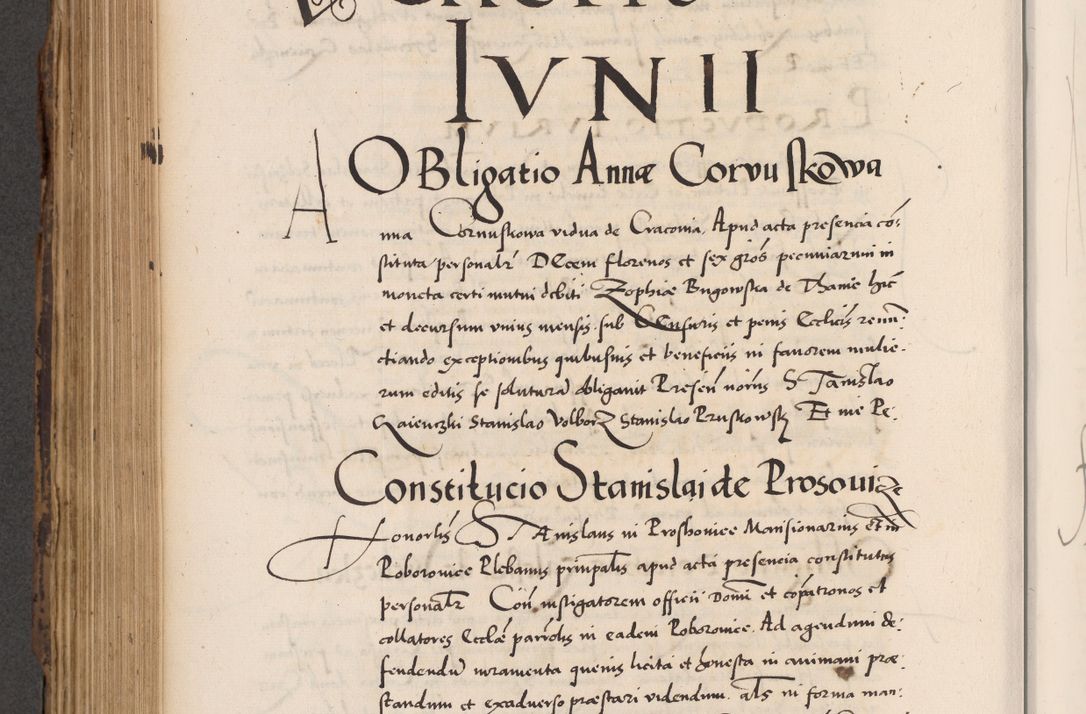 IVNII
OBligatio Annæ Corvuskowa
Anna Cornuskowa vidua de Cracovia, Apud acta presencia cō:
stituta personalr̄ DEcem florenos et sex gros̄ pecuniarum in
moneta certi mutui debiti Zophiæ Bugowska de Thanie hic̄
et decursum unius mensis sub CEnsuris et penis Ecclicis renun:
ctiando exceptionibus quibusuis et beneficiis in favorem mulie-
rum editis se soluturā obligavit Presen̄ nob̄ris STanislao
Stanislao Volborz Stanislao Pruskowsky Et me Pe:
Constitucio Stanislai de Prosovicze
Honorl̄is STAnislaus in Proshovice Mansionarius et in
Poborovice Plebanus prinpalis apud acta presencia constitutus
personalr̄ Con̄ instigatorem officii Domī et cōpatronos et
collatores Ecclæ parōlis in eadem Poborovice. Ad agendum de:
fendendū iuramenta quevis licita et honesta in animam præ:
standum et exadverso præstari videndum. als̄ in forma man: